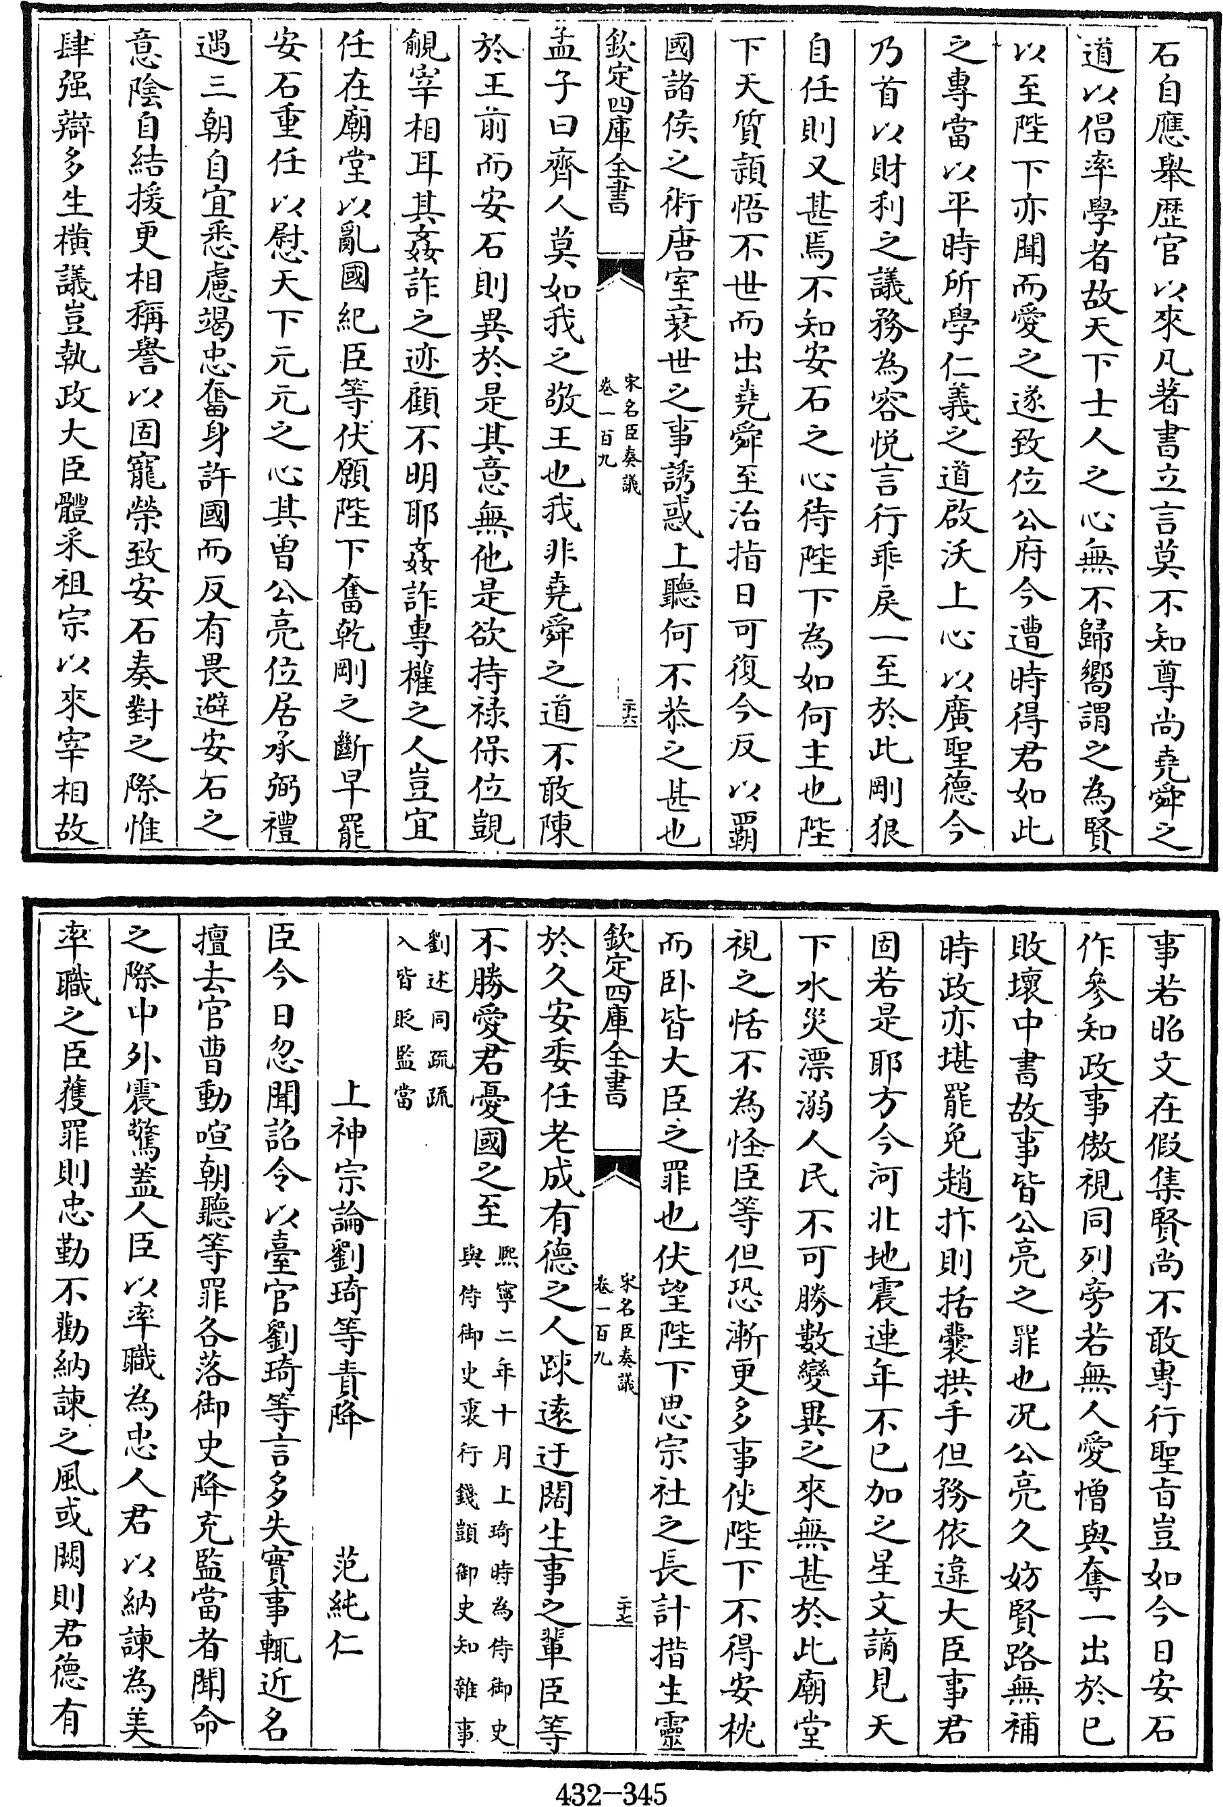 石自應舉歴官以來凡著書立言莫不知尊尚堯舜之
道以倡率學者故天下士人之心無不歸嚮謂之為賢
以至陛下亦聞而愛之遂致位公府今遭時得君如此
之專當以平時所學仁義之道啟沃上心以廣聖德今
乃首以財利之議務為容悦言行乖戾一至於此剛狠
自任則又甚焉不知安石之心待陛下為如何主也陛
下天質頴悟不世而出堯舜至治指日可復今反以覇
國諸侯之術唐室衰世之事誘惑上聽何不恭之甚也
欽定四庫全書
宋名臣奏議
卷一百九
二十六
孟子曰齊人莫如我之敬王也我非堯舜之道不敢陳
於王前而安石則異於是其意無他是欲持禄保位覬
覦宰相耳其姦詐之迹顧不明耶姦詐專權之人豈宜
任在廟堂以亂國紀臣等伏願陛下奮乾剛之斷早罷
安石重任以慰天下元元之心其曽公亮位居承弼禮
遇三朝自宜悉慮竭忠奮身許國而反有畏避安石之
意陰自結援更相稱譽以固寵榮致安石奏對之際惟
肆强辯多生横議豈執政大臣體釆祖宗以來宰相故
事若昭文在假集賢尚不敢專行聖㫖豈如今日安石
作參知政事傲視同列旁若無人愛憎與奪一出於已
敗壞中書故事皆公亮之罪也况公亮久妨賢路無補
時政亦堪罷免趙抃則括囊拱手但務依違大臣事君
固若是耶方今河北地震連年不已加之星文謫見天
下水災漂溺人民不可勝數變異之來無甚於此廟堂
視之恬不為怪臣等但恐漸更多事使陛下不得安枕
而卧皆大臣之罪也伏望陛下思宗社之長計措生靈
欽定四庫全書
宋名臣奏議
卷一百九
二十七
於久安委任老成有德之人踈逺迂闊生事之輩臣等
不勝愛君憂國之至熙寧二年十月上琦時為侍御史
與侍御史裏行錢顗御史知雜事
劉述同疏疏
入皆貶監當
上神宗論劉琦等責降　范純仁
臣今日忽聞詔令以臺官劉琦等言多失實事輒近名
擅去官曹動喧朝聽等罪各落御史降充監當者聞命
之際中外震驚蓋人臣以率職為忠人君以納諫為美
率職之臣獲罪則忠勤不勸納諫之風或闕則君德有
432-345